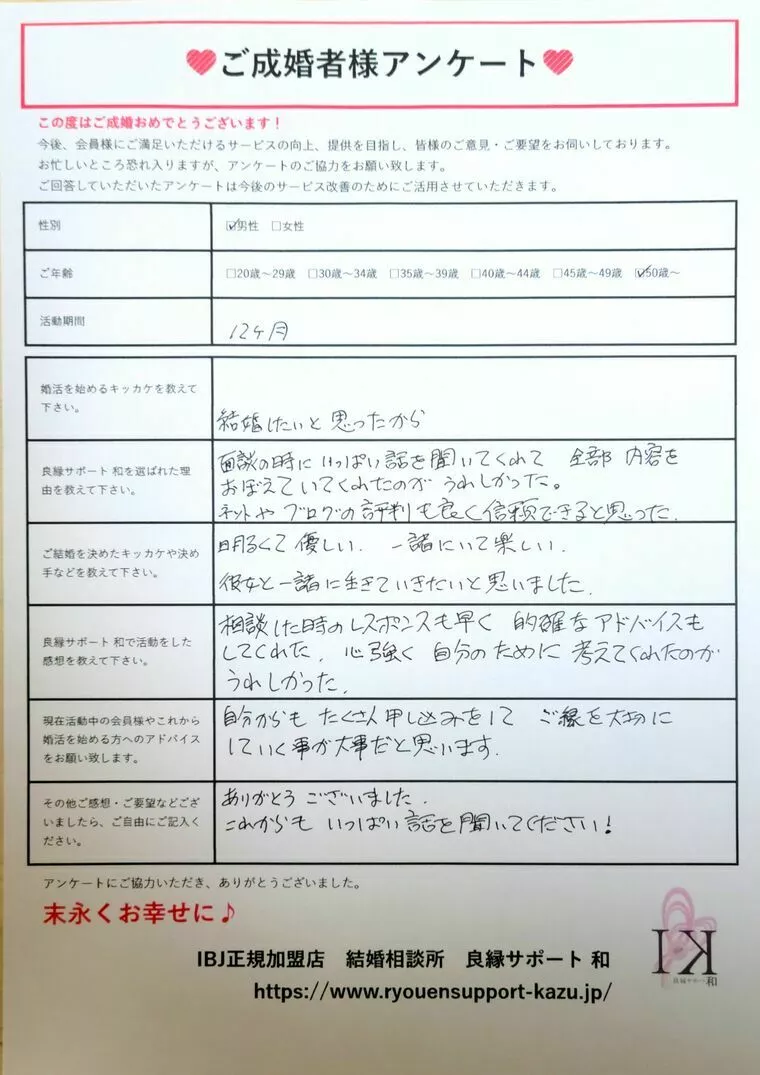 ご成婚者様アンケート
この度はご成婚おめでとうございます！
今後、会員様にご満足いただけるサービスの向上、提供を目指し、皆様のご意見・ご要望をお伺いしております。
お忙しいところ恐れ入りますが、アンケートのご協力をお願い致します。
ご回答していただいたアンケートは今後のサービス改善のためにご活用させていただきます。
性別
☑男性 □女性
ご年齢
□20歳～29歳 □30歳～34歳 □35歳～39歳 □40歳～44歳 □45歳～49歳 ☑50歳～
活動期間
12ヶ月
婚活を始めるキッカケを教えて
下さい。
結婚したいと思ったから
良縁サポート 和を選ばれた理
由を教えて下さい。
面談の時に いっぱい話を聞いてくれて 全部 内容を
おぼえていてくれたのが うれしかった。
ネットや ブログの評判も良く信頼できると思った.
ご結婚を決めたキッカケや決め
手などを教えて下さい。
明るくて優しい. 一緒にいて楽しい.
彼女と一緒に生きていきたいと思いました.
良縁サポート 和で活動をした
感想を教えて下さい。
相談した時のレスポンスも早く 的確なアドバイスも
してくれた. 心強く 自分のために 考えてくれたのが
うれしかった.
現在活動中の会員様やこれから
婚活を始める方へのアドバイス
をお願い致します。
自分からも たくさん申し込みをして ご縁を大切に
していく事が大事だと思います.
その他ご感想・ご要望などござ
いましたら、ご自由にご記入く
ださい。
ありがとう ございました.
これからも いっぱい 話を聞いてください!
アンケートにご協力いただき、ありがとうございました。
末永くお幸せに♪
IBJ正規加盟店 結婚相談所 良縁サポート 和
https://www.ryouensupport-kazu.jp/
KI
良縁サポート 和